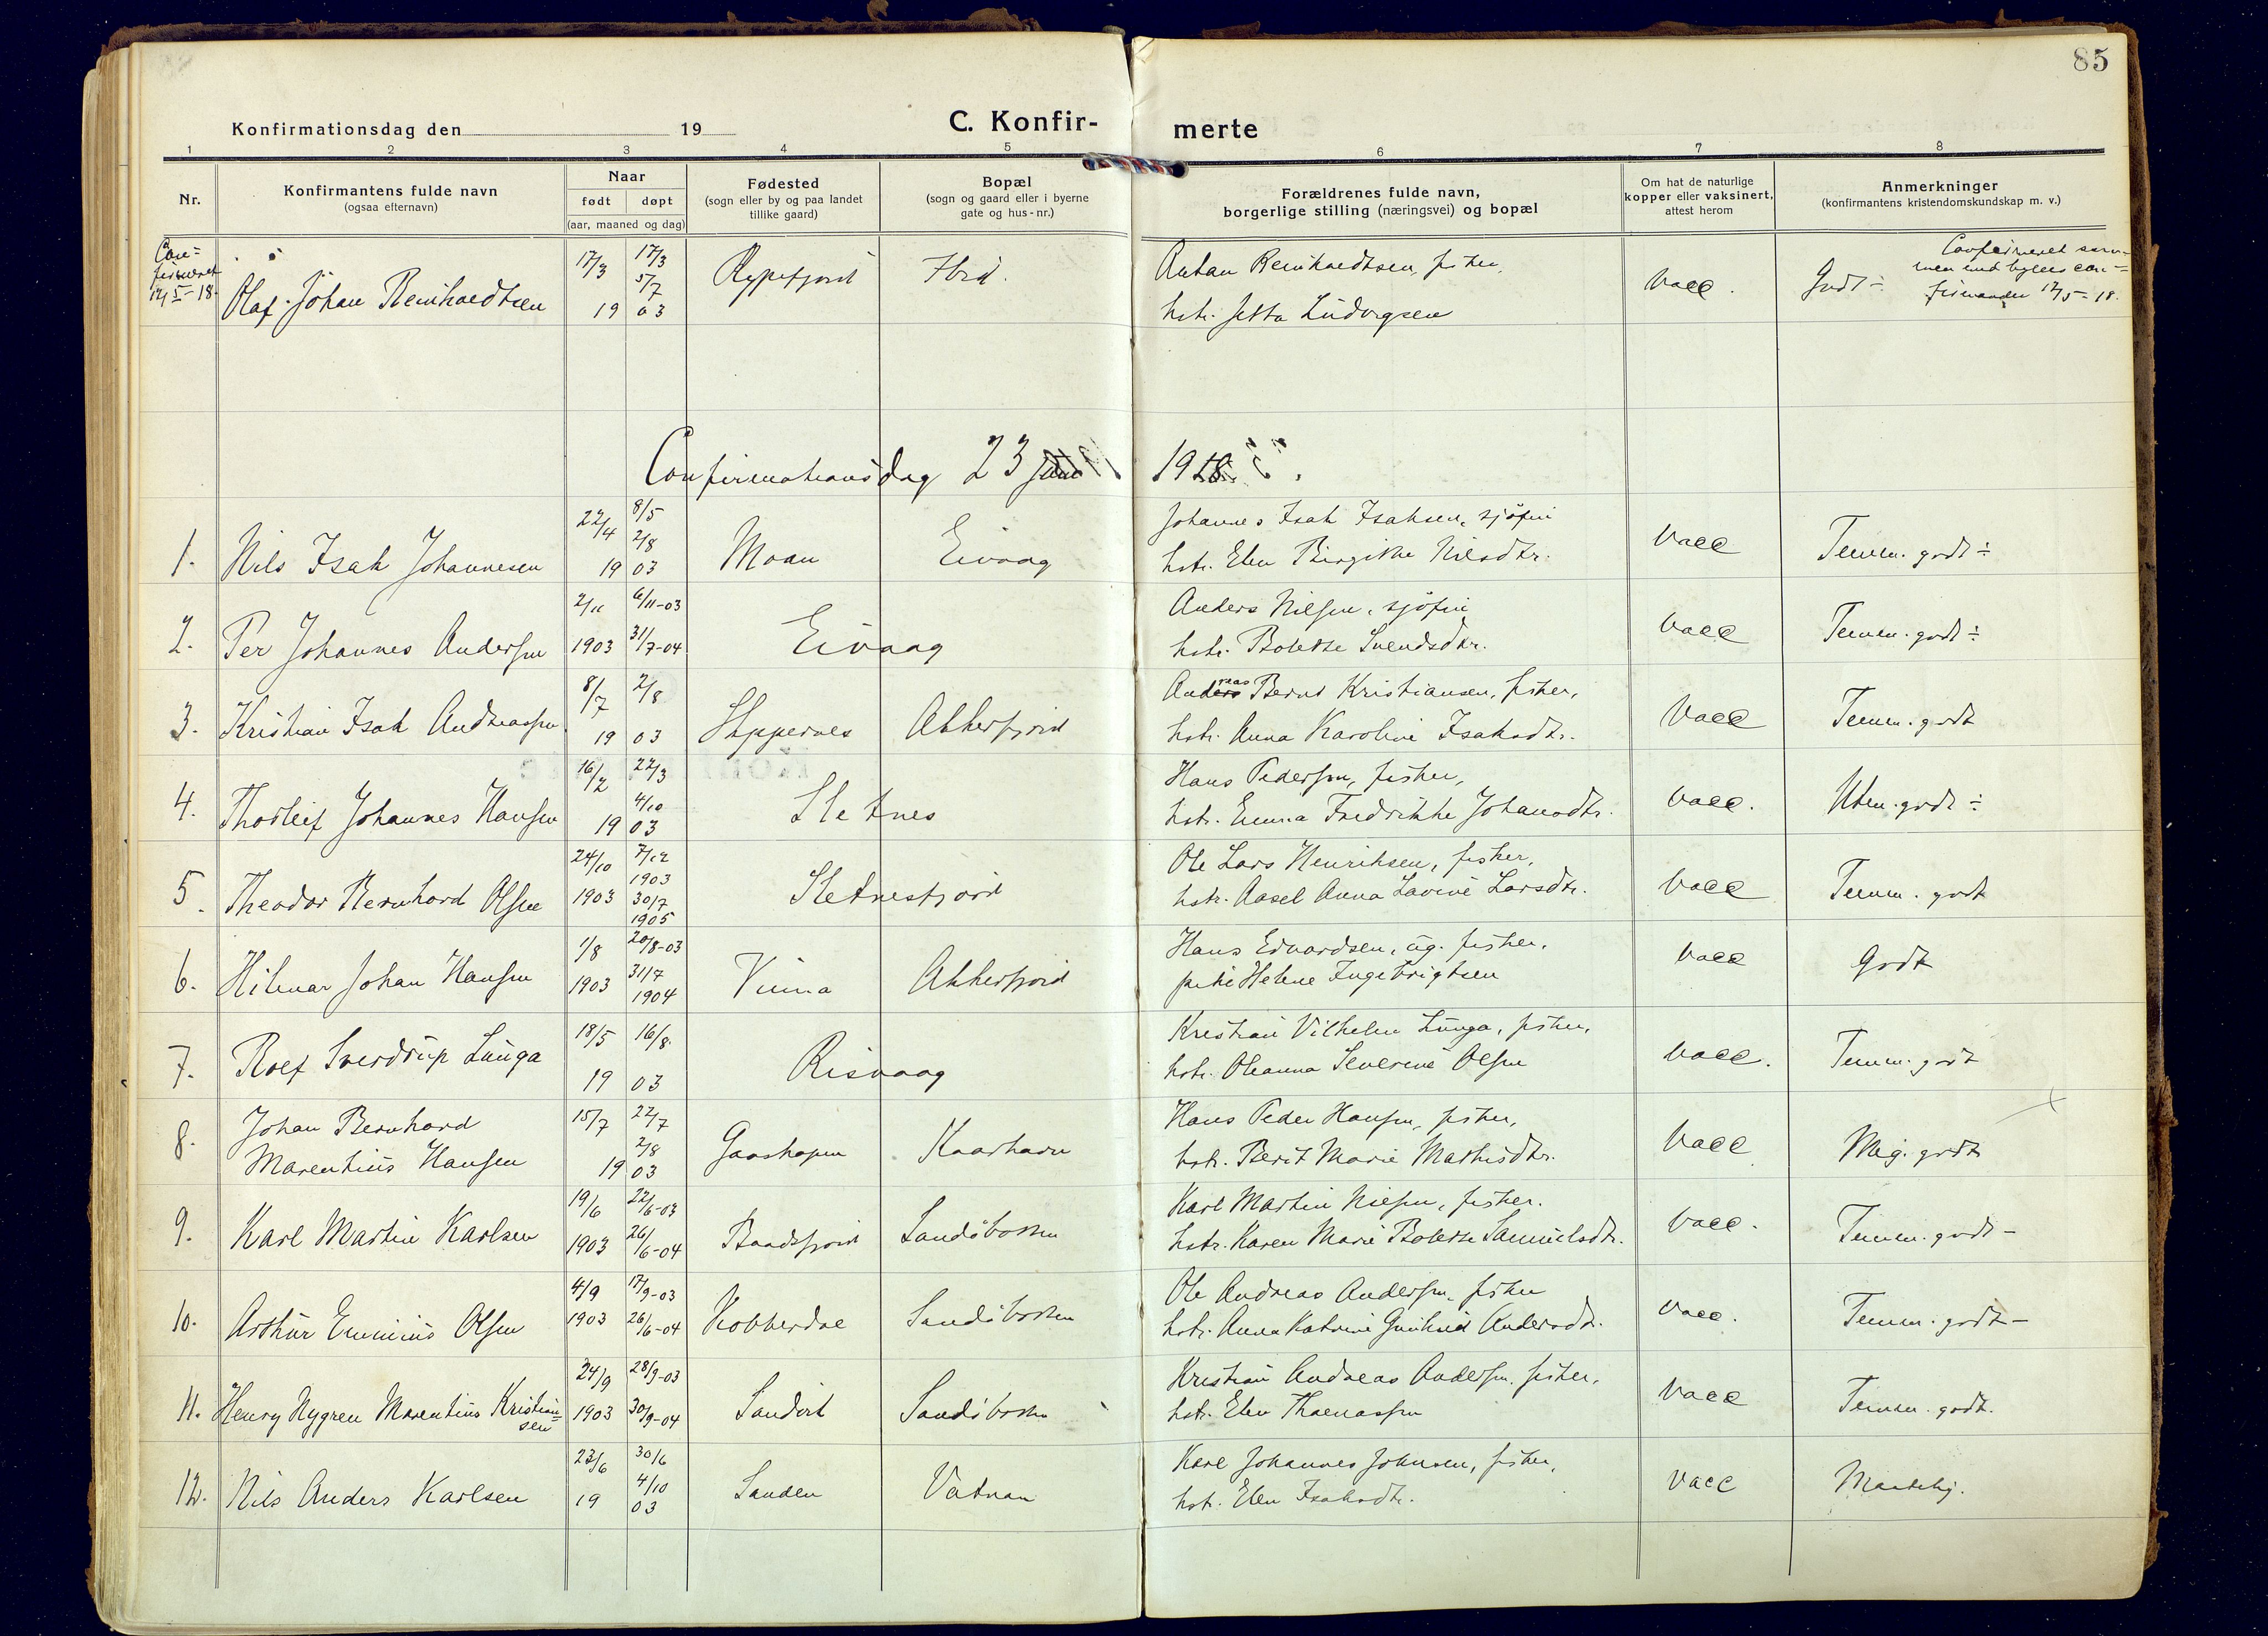 85
Konfirmationsdag den 19
C. Konfir- merte
1 2 3 4 5 6 7 8
Nr.
Konfirmantens fulde navn
(ogsaa efternavn)
Naar
født døpt
(aar, maaned og dag)
Fødested
(sogn eller by og paa landet
tillike gaard)
Bopæl
(sogn og gaard eller i byerne
gate og hus-nr.)
Forældrenes fulde navn,
borgerlige stilling (næringsvei) og bopæl
Om hat de naturlige
kopper eller vaksinert,
attest herom
Anmerkninger
(konfirmantens kristendomskundskap m. v.)
Con=
firmeret
12/5-18.
Olaf Johan Reinhardtsen
17/3 17/3
5/7
19 03
Rypefjord Ibid.
Anton Reinhardtsen, fisker,
hstr. Jetta Ludvigsen
vacc.
Godt ÷
Confirmeret sam-
men med byens con=
firmander 12/5-18.
Confirmationsdag 23 juni 1918.
1. Nils Isak Johannesen
22/4 8/5
2/8
19 03
Moan Eivaag
Johannes Isak Isaksen, sjöfin
hstr. Elen Birgitte Nilsdtr.
vacc
Temm. godt ÷
2. Per Johannes Andersen
2/11 6/11-03
1903 31/7-04
Eivaag
Anders Nilsen, sjöfin
hstr. Bolette Svendsdtr.
vacc
Temm. godt ÷
3. Kristian Isak Andreassen
8/7 2/8
19 03
Skippernes Akkerfjord
Andreas Bernt Kristiansen, fisker,
hstr. Anna Karoline Isaksdtr.
vacc
Temm. godt
4. Thorleif Johannes Hansen
16/2 22/3
4/10
19 03
Sletnes
Hans Pedersen, fisker,
hstr. Emma Fredrikke Johansdtr.
vacc.
Utm. godt ÷
5. Theodor Bernhard Olsen
24/10 7/12
1903
1903 30/7
1905
Sletnesfjord
Ole Lars Henriksen, fisker,
hstr. Aasel Anna Lavine Larsdtr.
vacc
Temm. godt
6. Hilmar Johan Hansen
1/8 20/8-03
1903 31/7
1904
Vinna Akkerfjord
Hans Edvardsen, ug. fisker,
pike Helene Ingebrigtsen
vacc
Godt
7. Rolf Sverdrup Lunga
18/5 16/8
19 03
Risvaag
Kristian Vilhelm Lunga, fisker,
hstr. Oleanna Severine Olsen
vacc.
Temm. godt
8. Johan Bernhard
Marentius Hansen
15/7 22/7
2/8
19 03
Gaashopen Kaarhavn
Hans Peder Hansen, fisker,
hstr. Berit Marie Mathisdtr.
vacc
Meg. godt
9. Karl Martin Karlsen
19/6 22/6-03
1903 26/6-04
Baadsfjord Sandöbotten
Karl Martin Nilsen, fisker.
hstr. Karen Marie Bolette Samuelsdtr.
vacc.
Temm. godt -
10. Arthur Emmius Olsen
4/9 17/9-03
1903 26/6-04
Kobberdal Sandöbotten
Ole Andreas Andersen, fisker
hstr. Anna Katrine Gunhild Andersdtr.
vacc.
Temm. godt -
11. Henry Nygren Marentius Kristian=
sen
24/9 28/9-03
1903 30/9-04
Sandvik Sandöbotten
Kristian Andreas Andersen, fisker,
hstr. Elen Thomassen
vacc
Temm. godt.
12. Nils Anders Karlsen
23/6 30/6
4/10
19 03
Sanden Vatnan
Karl Johannes Johnsen, fisker,
hstr. Elen Isaksdtr.
vacc
Maatelig.